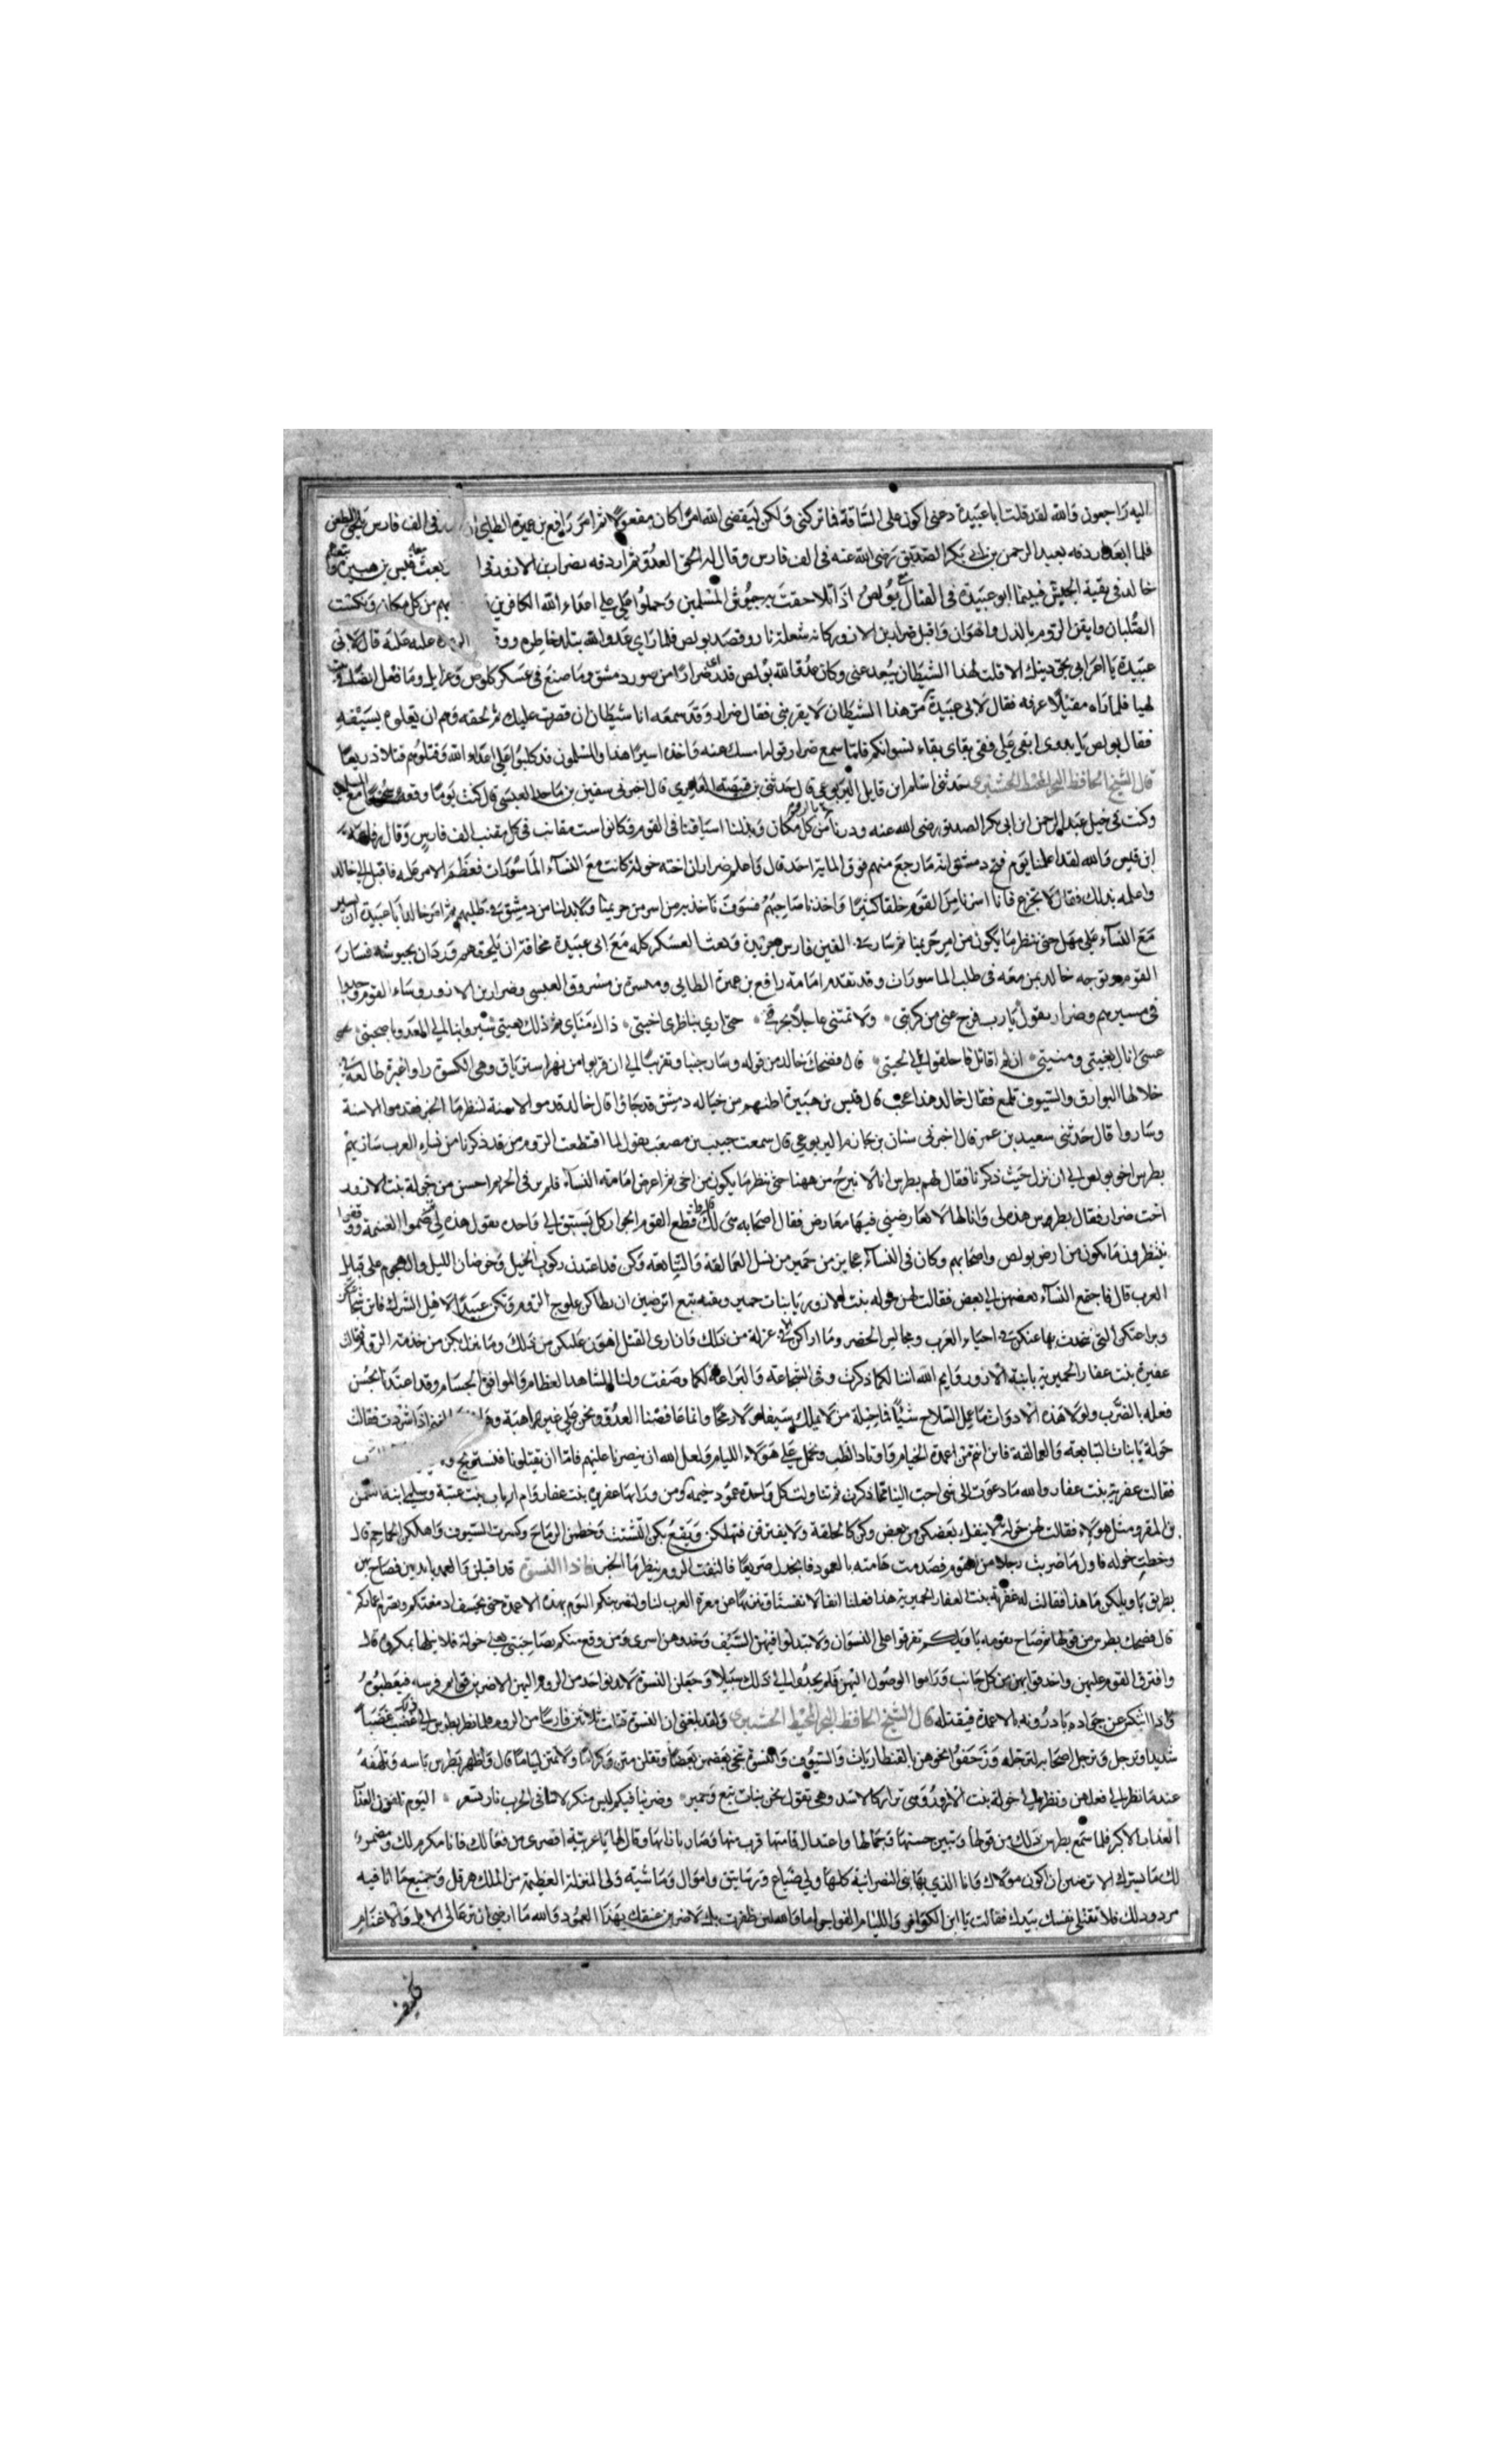 اليه راجعون والله لقد قلت يابا عبيدة دعنى اكون على الساقة فما تركتنى ولكن ليقضى الله امرا كان مفعولا ثم امر رافع بن عميرة الطائى فى الف فارس
فلما ابعد اردفه بعبد الرحمن بن ابى بكر الصديق رضى الله عنه فى الف فارس وقال له الحق العدو ثم اردفه بضرار بن الازور فى بعث قيس بن هبيرة
خالد فى بقية الجيش فبينما ابو عبيدة فى القتال مع بولص اذ تلاحقت به جيوش المسلمين وحملوا على اعداء الله الكافرين من كل مكان ونكست
الصلبان وايقن الروم بالذل والهوان واقبل ضرار بن الازور كانه شعلة نار وقصد بولص فلما راى عدو الله تبلد خاطره عليه حملة قال لابى
عبيدة يا اعرابى بحق دينك الا قلت لهذا الشيطان يبعد عنى وكان عدو الله بولص قد راى ضرارا من صور دمشق وما صنع فى عسكر كلوص وعزازيل وما فعل ايضا
لهيا فلما راه مقبلا عرفه فقال لابى عبيدة مر هذا الشيطان لا يقربنى فقال ضرار وقد سمعه انا شيطان ان قصرت عليك ثم لحقه وهم ان يعلوه بسيفه
فقال بولص يا بدوى ابقى على ففى بقاى بقاء نسوانكم فلما سمع ضرار قوله امسك عنه واخذه اسيرا هذا والمسلمون قد كلبوا على اعداء الله وقتلوهم قتلا ذريعا
قال الشيخ الحافظ حدثنى اسلم ابن قايل اليربوعى قال حدثنى بن قبيصة العامرى قال اخبرنى سفين بن العبسى قال كنت يوما وقعة مع المسلمين
وكنت فى خيل عبد الرحمن ابن ابى بكر الصديق رضى الله عنه ودرنا بالروم من كل مكان وبذلنا اسيافنا فى القوم فكانوا ست مقانب فى كل مقنب الف فارس وقال رفاعة
ابن قيس والله لقد اعلمنا يوم فتح دمشق انه ما رجع منهم فوق الماية احد قال واعلم ضرار ان اخته خولة كانت مع النساء الماسورات فعظم الامر عليه فاقبل الى خالد
واعلمه بذلك فقال لا تجزع فانا اسرنا من القوم خلقا كثيرا واخذنا صاحبهم فسوف ناخذ به من اسر من حريمنا ولا بد لنا من دمشق فى طلبهم ثم امر خالد ابا عبيدة ان يسير
مع النساء على مهل حتى ننظر ما يكون من امر حريمنا ثم سار فى الفين فارس جريدة وبعث العسكر كله مع ابى عبيدة مخافة ان يلحقهم وردان بجيوشه فسار
القوم وتوجه خالد بمن معه فى طلب الماسورات وقد تقدم امامه رافع بن عميرة الطايى وميسرة بن مسروق العبسى وضرار بن الازور وساء القوم وجدوا
فى مسيرهم وضرار يقول يا رب فرج عنى من كربتى ولا تمتنى عاجلا بحرقتى حتى ارى بناظرى اخيتى ذاك مناى ثم ذلك هيتى سيروا بنا الى العدو يا صحبتى عسى
عسى انال بغيتى ومنيتى ان لم اقاتل فاحلقوا لى لحيتى قال فضحك خالد من قوله وسار جنبا وتقربا الى ان قربوا من نهر استرياق وهى الكسوة راوا غبرة طالعة فى
خلالها البوارق والسيوف تلمع فقال خالد هذا عجب قال قيس بن هبيرة اظنهم من خيالة دمشق قد جاؤا قال خالد قدموا الاسنة لننظر ما الخبر فقدموا الاسنة
وساروا قال حدثنى سعيد بن عمر قال اخبرنى سنان بن اليربوعى قال سمعت حبيب بن مصعب يقول لما اقتطعت الروم من قد ذكرنا من نساء العرب سار بهم
بطرس اخى بولص الى ان نزل حيث ذكرنا فقال لهم بطرس انا لا نبرح من ههنا حتى ننظر ما يكون من اخى ثم اعرض امامه النساء فلم ير فى الحريم احسن من خولة بنت الازور
اخت ضرار فقال بطرس هذه لى وانا لها لا يعارضنى فيها معارض فقال اصحابه هى لك وقطع القوم الجوار كل يستبق الى واحدة يقول هذه لى ثم قسموا الغنيمة ووقفوا
ينتظرون ما يكون من ارض بولص واصحابهم وكان فى النساء عجايز من حمير من نسل العمالقة والتبابعة وكن قد اعتدن ركوب الخيل وخوضان الليل والهجوم على قبايل
العرب قال فاجتمع النساء بعضهن الى بعض فقالت لهن خولة بنت الازور يا بنات حمير وبقية تبع اترضين ان يطاكن علوج الروم وتكن عبيدا لاهل الشرك فاين شجاعتكن
وبراعتكن التى نتحدث بها عنكن فى احياء العرب ومجالس الحضر وما اراكن الا فى عزلة من ذلك فانا ارى القتل اهون عليكن من ذلك وما ينزل بكن من خدمة الروم فقالت
عفيرة بنت عفار الحميرية يابنة الازور وايم الله اننا لكما ذكرت وفى الشجاعة والبراعة لكما وصفت ولنا المشاهد العظام والمواقف الجسام وقد اعتدنا بحسن
فعله بالضرب ولولا هذه الادوات ما عمل السلاح شيئا فما حيلة من لا يملك سيفا ولا رمحا وانما غافصنا العدو ونحن على غير اهبة فقالت
خولة يا بنات التبابعة والعمالقة فاين انتم من اعمدة الخيام واوتاد الطنب ونحمل على هؤلاء الليام ولعل الله ان ينصرنا عليهم فاما ان يقتلونا فنستريح
فقالت عفيرة بنت عفار والله ما دعوت الى شى احب الينا مما ذكرت ثم تناولت كل واحدة عمود خيمة ومن وراها عفيرة بنت عفار وام ابان بنت عتبة وسلمى ابنة النعمن
بن المقر ومثل هؤلاء فقالت لهن خولة لا ينفك بعضكن من بعض وكن كالحلقة ولا يفترقن فتهلكن ويقع بكن التشتت وحطمن الرماح وكسرن السيوف واهلكن الجماجم قال
وخطت خولة فاول ما ضربت رجلا من القوم فصدمت هامته بالعمود فانجدل صريعا فالتفت الروم ينظر ما الخبر فاذا النسوة قد اقبلن والعمد بايديهن فصاح بهن
بطريق يا ويلكن ما هذا فقالت له عفيرة بنت العفار الحميرية هذا فعلنا انفا لانفسنا وننفها عن معرة العرب لنا ولنضربنكم اليوم بهذه الاعمدة حتى نخسف ادمغتكم ونصرم اعماركم
قال فضحك بطرس من قولها ثم صاح بقومه يا ويلكم تفرقوا على النسوان ولا تبدلوا فيهن السيف وخذوهن اسرى ومن وقع منكم بصاحبتى يعنى خولة فلا ينلها بمكروه قال
وافترق القوم عليهن واحدقوا بهن من كل جانب وراموا الوصول اليهن فلم يجدوا الى ذلك سبيلا وجعلن النسوة لا يدنو احد من الروم اليهن الا ضربن قوايم فرسه فيعطبوه
واذا انتكس عن جواده بادرونه بالاعمدة فيقتله قال الشيخ الحافظ ولقد بلغنى ان النسوة قتلت ثلاثين فارسا من الروم فلما نظر بطرس الى ذلك غضب غضبا
شديدا وترجل وترجل اصحابه لترجله وزحفوا نحوهن بالقنطاريات والسيوف والنسوة تنحى بعضهن بعضا وتقلن متن كراما ولا تمتن لياما قال واظهر بطرس باسه وتلهفه
عندما نظر الى فعلهن ونظر الى خولة بنت الازور وهى تزار كالاسد وهى تقول نحن بنات تبع وحمير وضربنا فيكم ليس منكر لاننا فى الحرب نار تسعر اليوم تلقون العذاب
العذاب الاكبر فلما سمع بطرس ذلك من قولها وتبين حسنها وجمالها واعتدال قامتها قرب منها وصار بازائها وقال لها يا عربية اقصرى من فعالك فانا مكرم لك ومضمر
لك ما يسرك الا ترضين ان اكون مولاك وانا الذى يهابنى النصرانية كلها ولى ضياع ورساتيق واموال وماشية ولى المنزلة العظيمة من الملك هرقل وجميع ما انا فيه
مردود لك فلا تقتلى نفسك بيدك فقالت يا ابن الكوافر والليام الفواجر اما والله لئن ظفرت بك لاضربن عنقك بهذا العمود والله ما ارضى ان ترعى لى الابل والاغنام